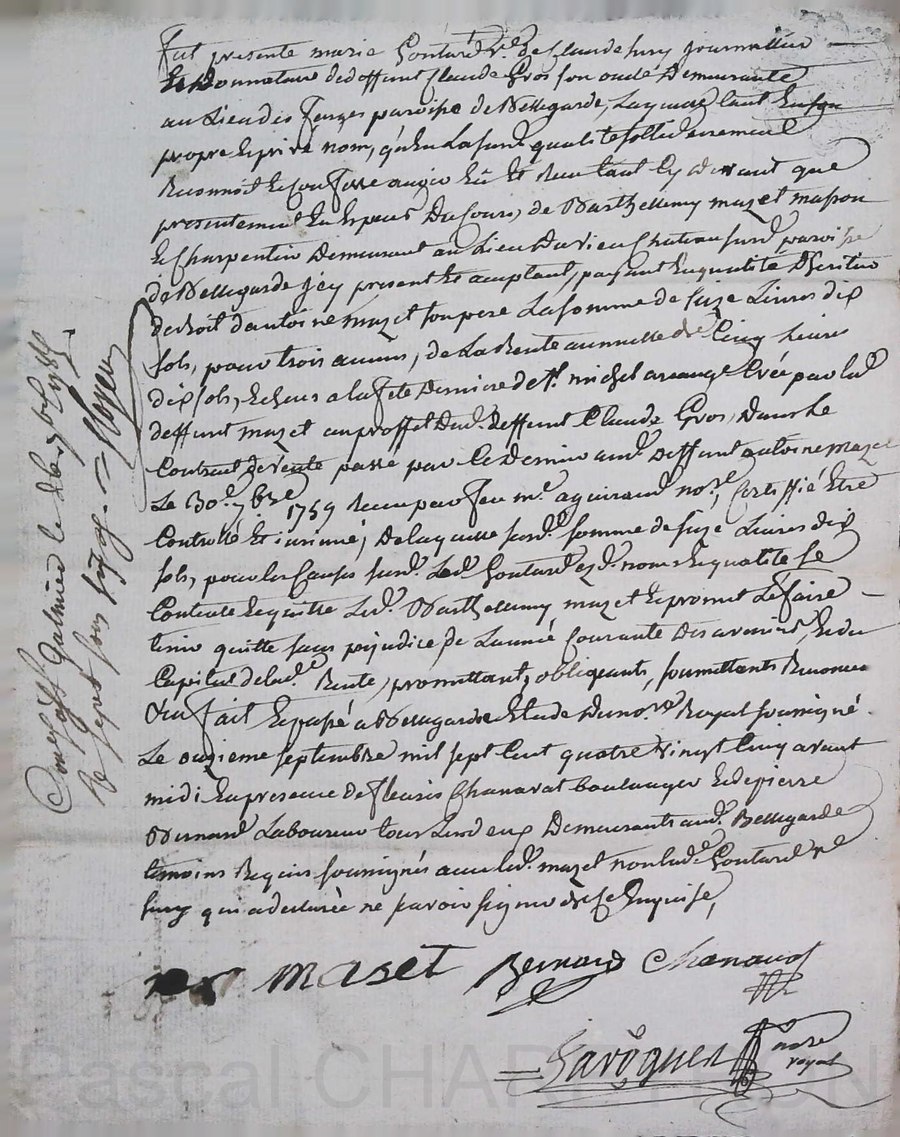 Fut presente marie Goutard v.e de Claude Jury journallier
et donnataire de deffunt Claude Gros son oncle Demeurante
au Lieu des farges paroisse de Bellegarde, Laquelle tant en son
propre et privé nom, qu'en La susd. qualité solidairement
Reconnoit et Confesse avoir Eû et Recu tant Cy devant que
presentement En Espece Du Cours, de Barthellemy mazet masson
et Charpentier Demeurant au Lieu Du vieu Chateau susd. paroisse
de Bellegarde Icy present et aceptant, payant En qualité D'heritier
de droit d'antoine mazet son pere La somme de seize Livres dix
sols, pour trois années, de La Rente annuelle de Cinq Livres
dix sols, Echeus a la fete Derniere de St. michel archange Créé par led.
deffunt mazet au proffet Dud. Deffunt Claude Gros, Dans Le
Contract de vente passé par Ce Dernier aud. Deffunt antoine mazet
Le 30.e 9bre 1759 Recu par feu m.e aguiraud no.re, Certiffié Etre
Controllé Et insinué, De laquelle susd. somme de seize Livres dix
sols, pour les Causes susd. Lad. Goutard ez d. noms et qualité se
Contente et quitte Led. Barthellemy mazet et promet Le faire
tenir quitte sans prejudice de L'année Courante Des avenir, et du
Capital de lad.e Rente, promettant, obligeants, soumettants Renoncer
Ou fait et passé a Bellegarde Etude Du no.re Royal soussigné
Le onzieme septembre mil sept Cent quatre vingt Cinq avant
midi En presence de fleuris Chanavat boulanger et de pierre
Bernard Laboureur tous Les deux Demeurants aud. Bellegarde
temoins Requis soussignés avec led. mazet non lad.e Goutard v.e
Jury qui a declarée ne savoir signer de ce Enquise,
maset Bernard Chanavat
Laroguer nore
royal
Con.lé a St Galmier le 7bre 1785
Recu quinze sols
Pascal CHARETTON